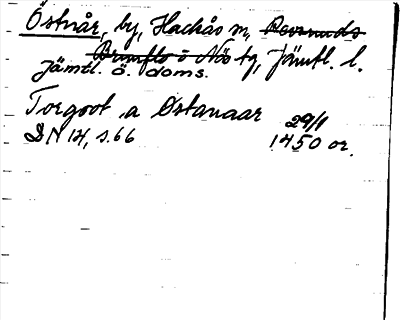 Östnår, by, Hackås sn, Revsunds
Brunflo o Näs tg, Jämtl. l.
Jämtl. ö. doms.
Torgoot .a Østanaar 29/1
DN 14, s. 66 1450 or.